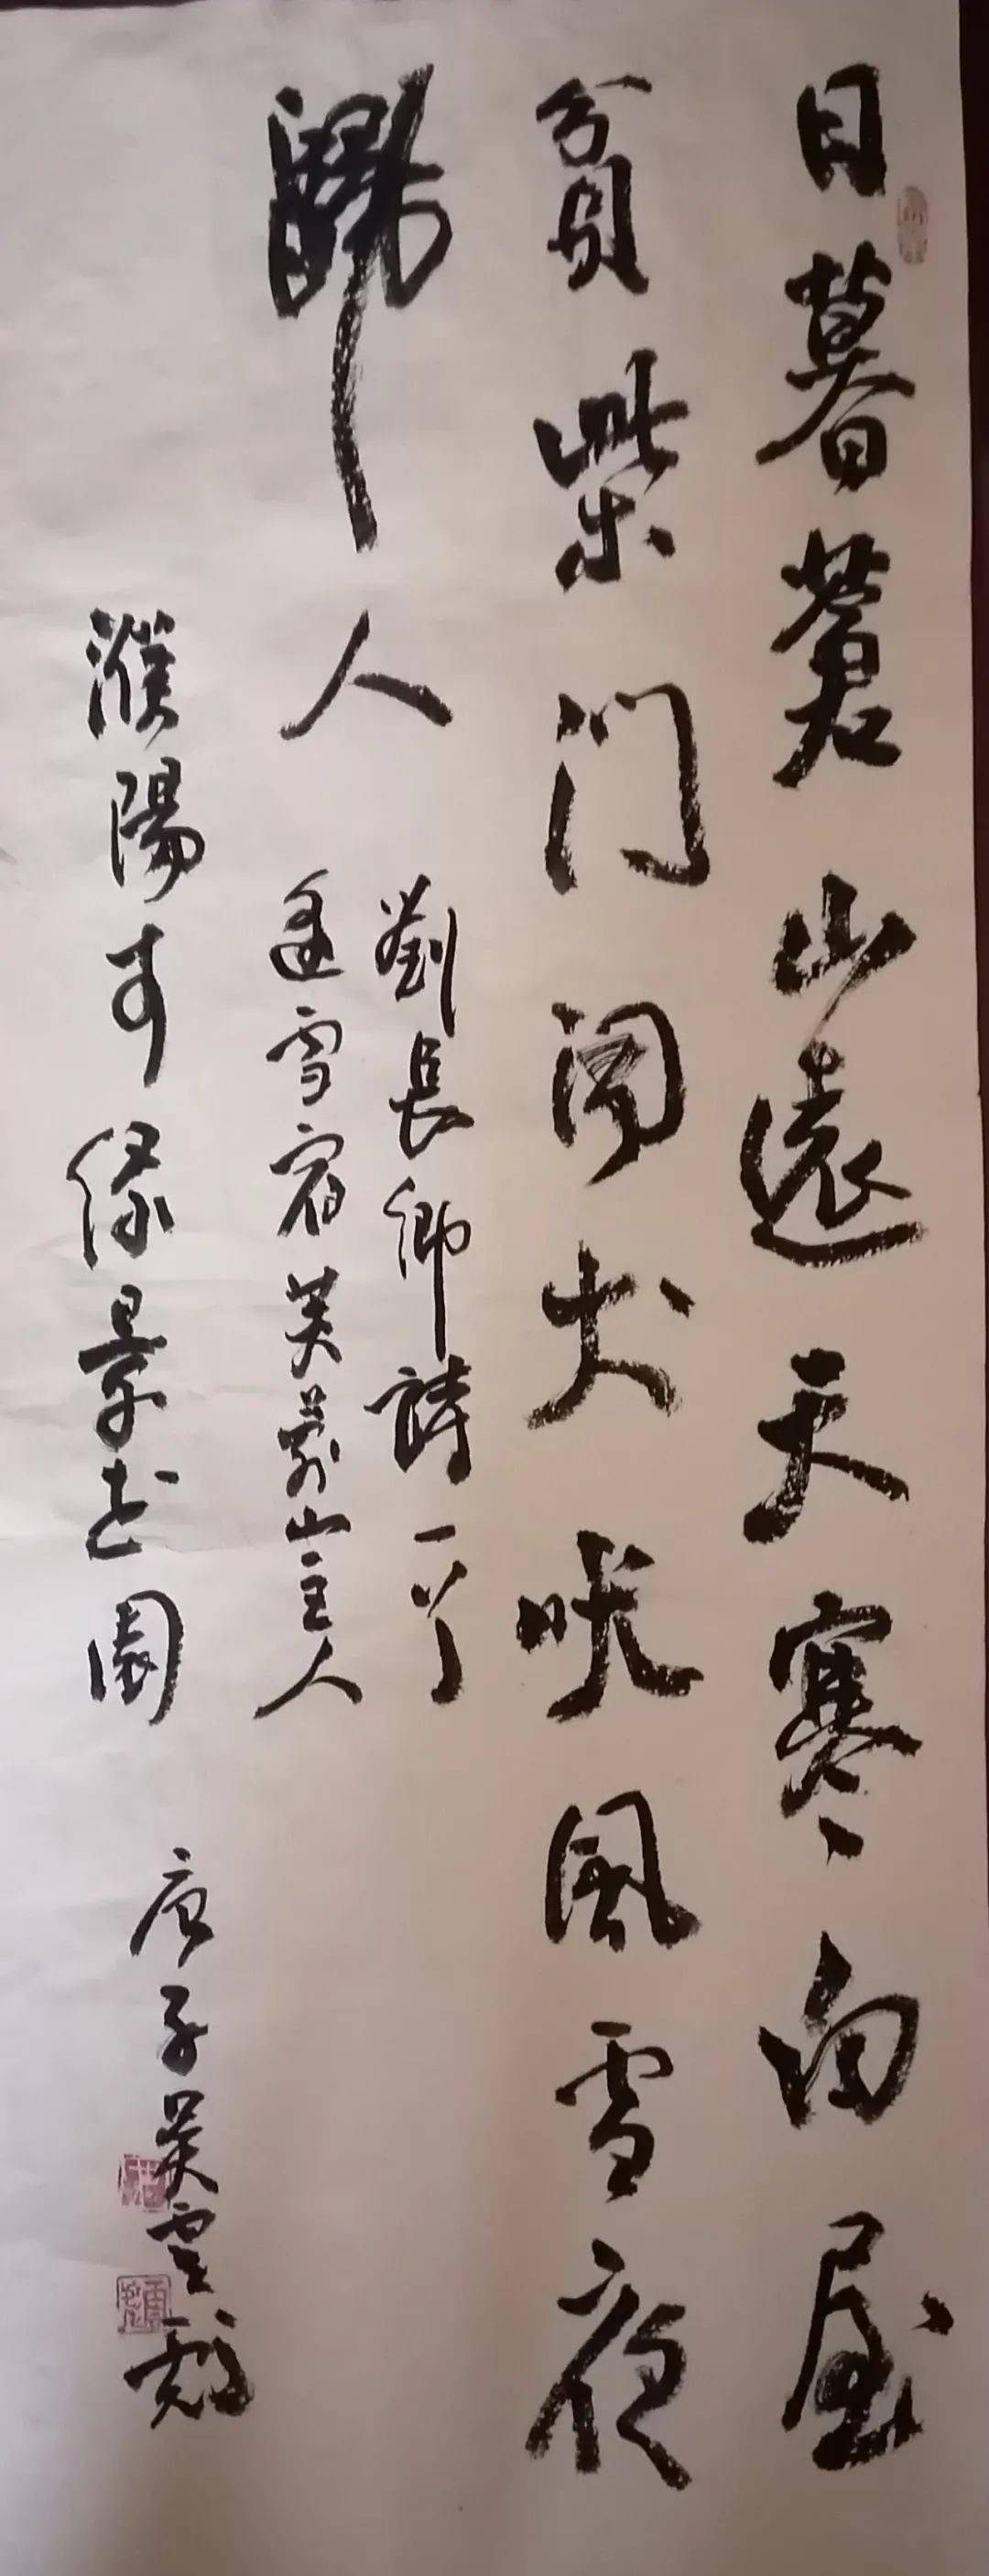 日暮蒼山遠天寒白屋
貧柴門闻犬吠風雪夜
歸人
劉長卿詩一首
逢雪宿芙蓉山主人
濮陽市绿景花園
庚子吴雲